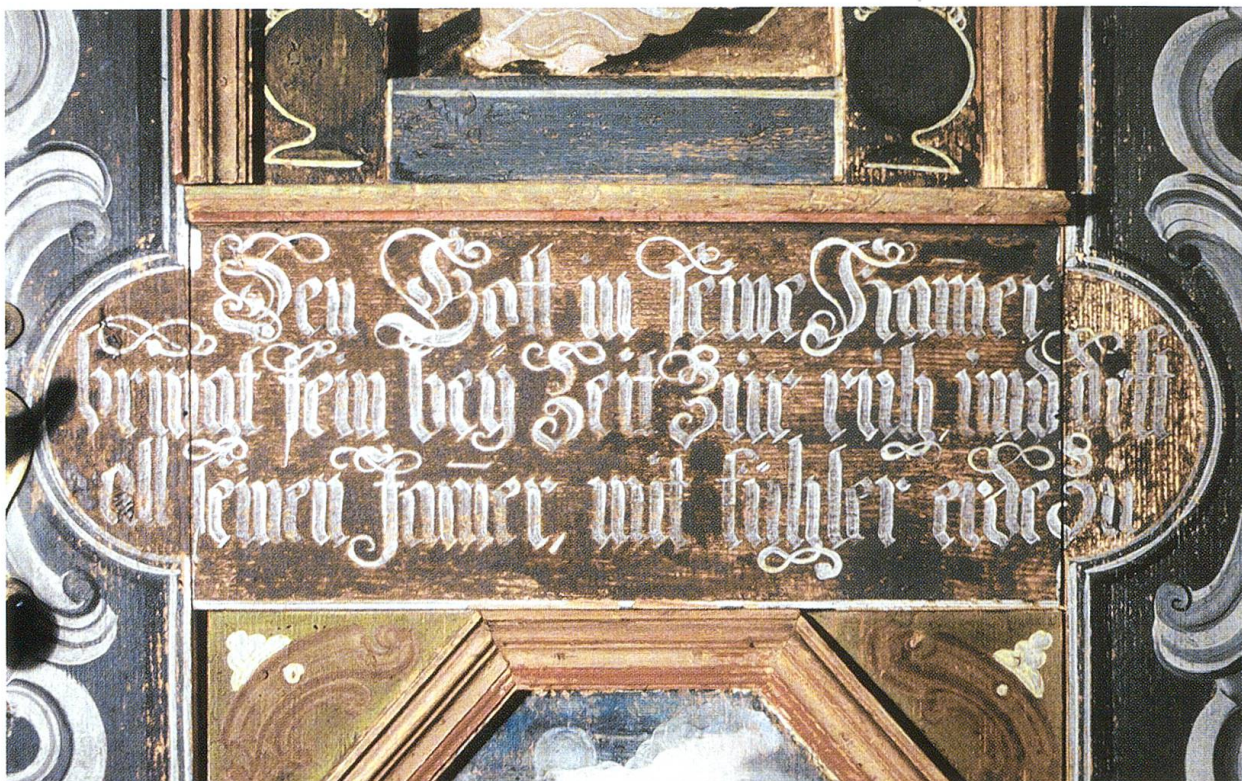 Den Gott in seine Kamer
bringt fein beÿ Zeit Zur ruh, und dekt
all seinen Jam̄er, mit kühler erde Zu